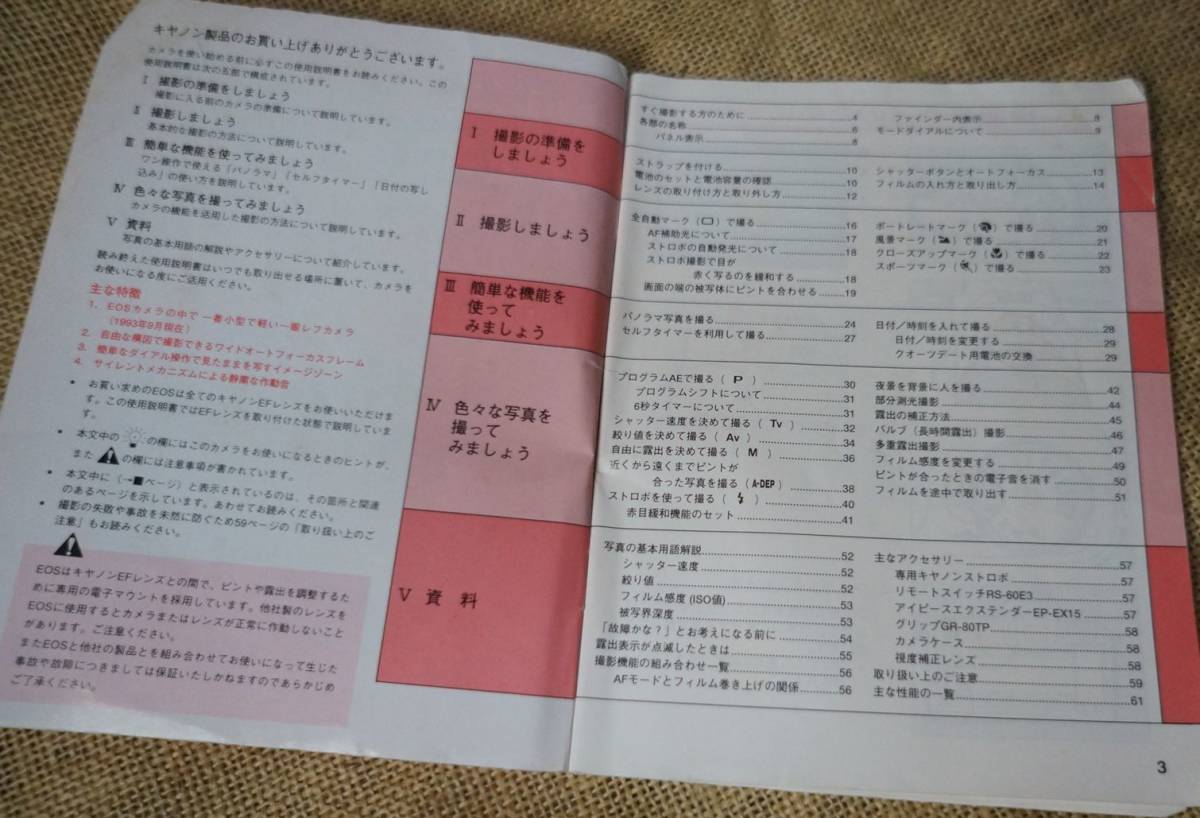 キヤノン製品のお買い上げありがとうございます。
カメラを使い始める前に必ずこの使用説明書をお読みください。この
使用説明書は次の五部で構成されています。
Ⅰ 撮影の準備をしましょう
撮影に入る前のカメラの準備について説明しています。
Ⅱ 撮影しましょう
基本的な撮影の方法について説明しています。
Ⅲ 簡単な機能を使ってみましょう
ワン操作で使える「パノラマ」「セルフタイマー」「日付の写し
込み」の使い方を説明しています。
Ⅳ 色々な写真を撮ってみましょう
カメラの機能を活用した撮影の方法について説明しています。
Ⅴ 資料
写真の基本用語の解説やアクセサリーについて紹介しています。
読み終えた使用説明書はいつでも取り出せる場所に置いて、カメラを
お使いになる度にご活用ください。
主な特徴
1. EOSカメラの中で一番小型で軽い一眼レフカメラ
(1993年9月現在)
2. 自由な構図で撮影できるワイドオートフォーカスフレーム
3. 簡単なダイアル操作で見たままを写すイメージゾーン
4. サイレントメカニズムによる静粛な作動音
• お買い求めのEOSは全てのキヤノンEFレンズをお使いいただけま
す。この使用説明書ではEFレンズを取り付けた状態で説明していま
す。
• 本文中の の欄にはこのカメラをお使いになるときのヒントが、
また の欄には注意事項が書かれています。
• 本文中に(→■ページ)と表示されているのは、その箇所と関連
のあるページを示しています。あわせてお読みください。
• 撮影の失敗や事故を未然に防ぐため59ページの「取り扱い上のご
注意」もお読みください。
EOSはキヤノンEFレンズとの間で、ピントや露出を調整するた
めに専用の電子マウントを採用しています。他社製のレンズを
EOSに使用するとカメラまたはレンズが正常に作動しないこと
があります。ご注意ください。
またEOSと他社の製品とを組み合わせてお使いになって生じた
事故や故障につきましては保証いたしかねますのであらかじめ
ご了承ください。
Ⅰ 撮影の準備を
しましょう
Ⅱ 撮影しましょう
Ⅲ 簡単な機能を
使って
みましょう
Ⅳ 色々な写真を
撮って
みましょう
Ⅴ 資料
すぐ撮影する方のために 4
各部の名称 6
パネル表示 8
ファインダー内表示 8
モードダイアルについて 9
ストラップを付ける 10
電池のセットと電池容量の確認 10
レンズの取り付け方と取り外し方 12
シャッターボタンとオートフォーカス 13
フィルムの入れ方と取り出し方 14
全自動マーク( )で撮る 16
AF補助光について 17
ストロボの自動発光について 18
ストロボ撮影で目が
赤く写るのを緩和する 18
画面の端の被写体にピントを合わせる 19
ポートレートマーク( )で撮る 20
風景マーク( )で撮る 21
クローズアップマーク( )で撮る 22
スポーツマーク( )で撮る 23
パノラマ写真を撮る 24
セルフタイマーを利用して撮る 27
日付/時刻を入れて撮る 28
日付/時刻を変更する 29
クオーツデート用電池の交換 29
プログラムAEで撮る(P) 30
プログラムシフトについて 31
6秒タイマーについて 31
シャッター速度を決めて撮る(Tv) 32
絞り値を決めて撮る(Av) 34
自由に露出を決めて撮る(M) 36
近くから遠くまでピントが
合った写真を撮る(A-DEP) 38
ストロボを使って撮る( ) 40
赤目緩和機能のセット 41
夜景を背景に人を撮る 42
部分測光撮影 44
露出の補正方法 45
バルブ(長時間露出)撮影 46
多重露出撮影 47
フィルム感度を変更する 49
ピントが合ったときの電子音を消す 50
フィルムを途中で取り出す 51
写真の基本用語解説 52
シャッター速度 52
絞り値 52
フィルム感度(ISO値) 53
被写界深度 53
「故障かな?」とお考えになる前に 54
露出表示が点滅したときは 55
撮影機能の組み合わせ一覧 56
AFモードとフィルム巻き上げの関係 56
主なアクセサリー 57
専用キヤノンストロボ 57
リモートスイッチRS-60E3 57
アイピースエクステンダーEP-EX15 57
グリップGR-80TP 58
カメラケース 58
視度補正レンズ 58
取り扱い上のご注意 59
主な性能の一覧 61
3